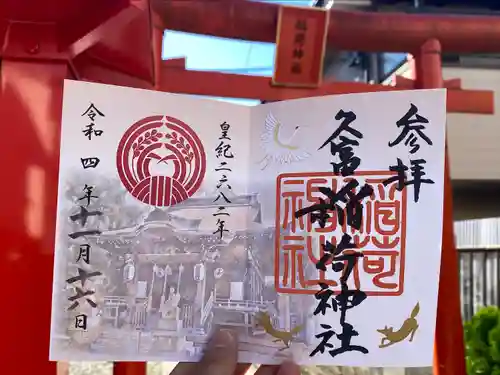 稲荷神社
参拝
久富稲荷神社
稲荷
神社
皇紀二六八二年
令和四年十一月十六日